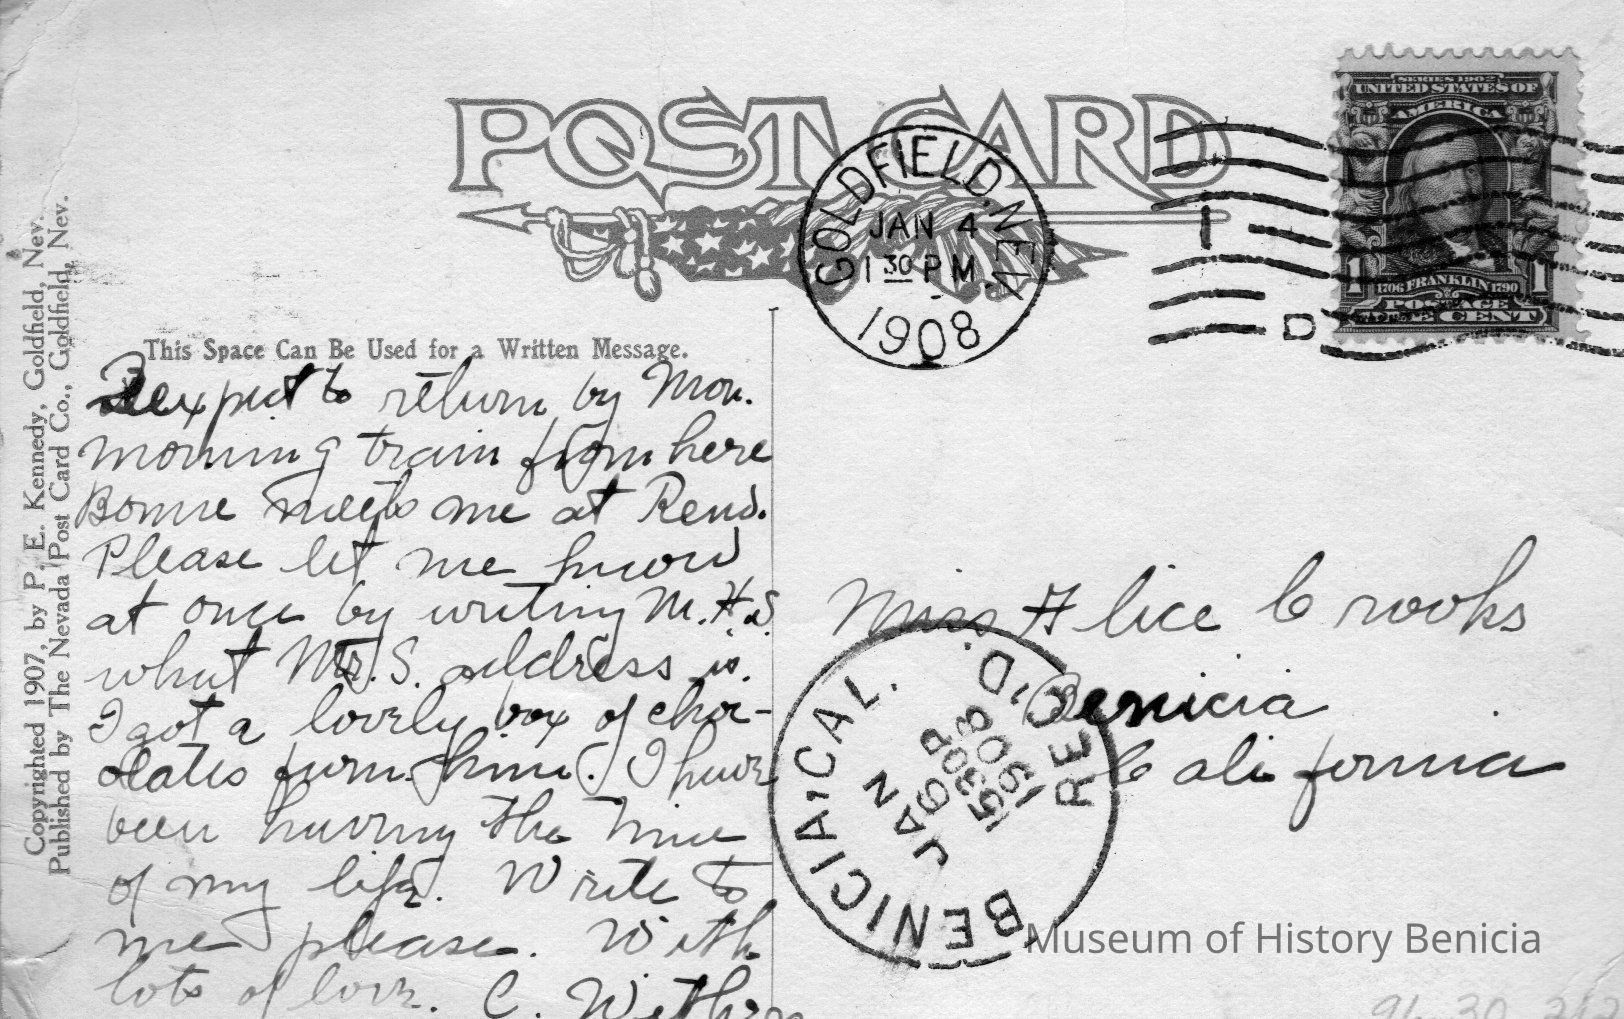 POST CARD
GOLDFIELD, NEV.
JAN 4
1 30 P M
1908
1
D
SERIES 1902
UNITED STATES OF
AMERICA
1 1706 FRANKLIN 1790 1
POSTAGE
ONE CENT
Copyrighted 1907, by P. E. Kennedy, Goldfield, Nev.
Published by The Nevada Post Card Co., Goldfield, Nev.
This Space Can Be Used for a Written Message.
expect to return by Mon.
morning train from here
Bonnie meets me at Reno.
Please let me know
at once by writing M.H.S.
what Mr. S. address is.
I got a lovely box of choc-
olates from him. I have
been having the time
of my life. Write to
me please. With
lots of love. C.
Miss Alice Crooks
Benicia
California
BENICIA, CAL.
JAN
530P
1908
REC'D.
Museum of History Benicia